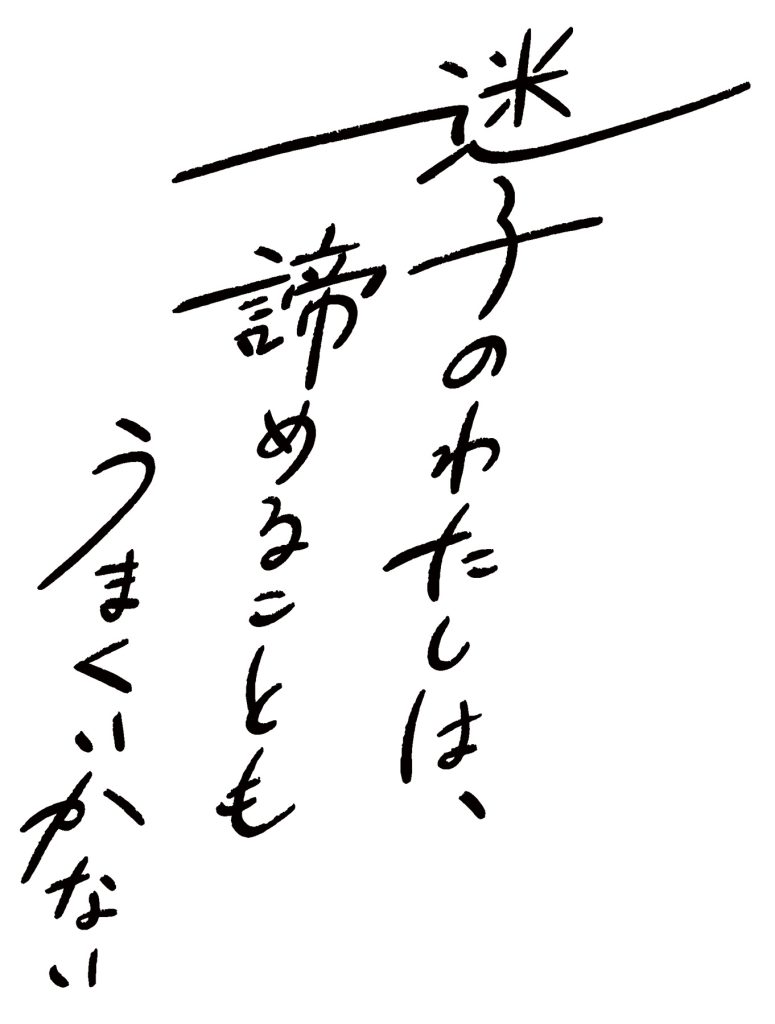 迷子のわたしは、
諦めることも
うまくいかない